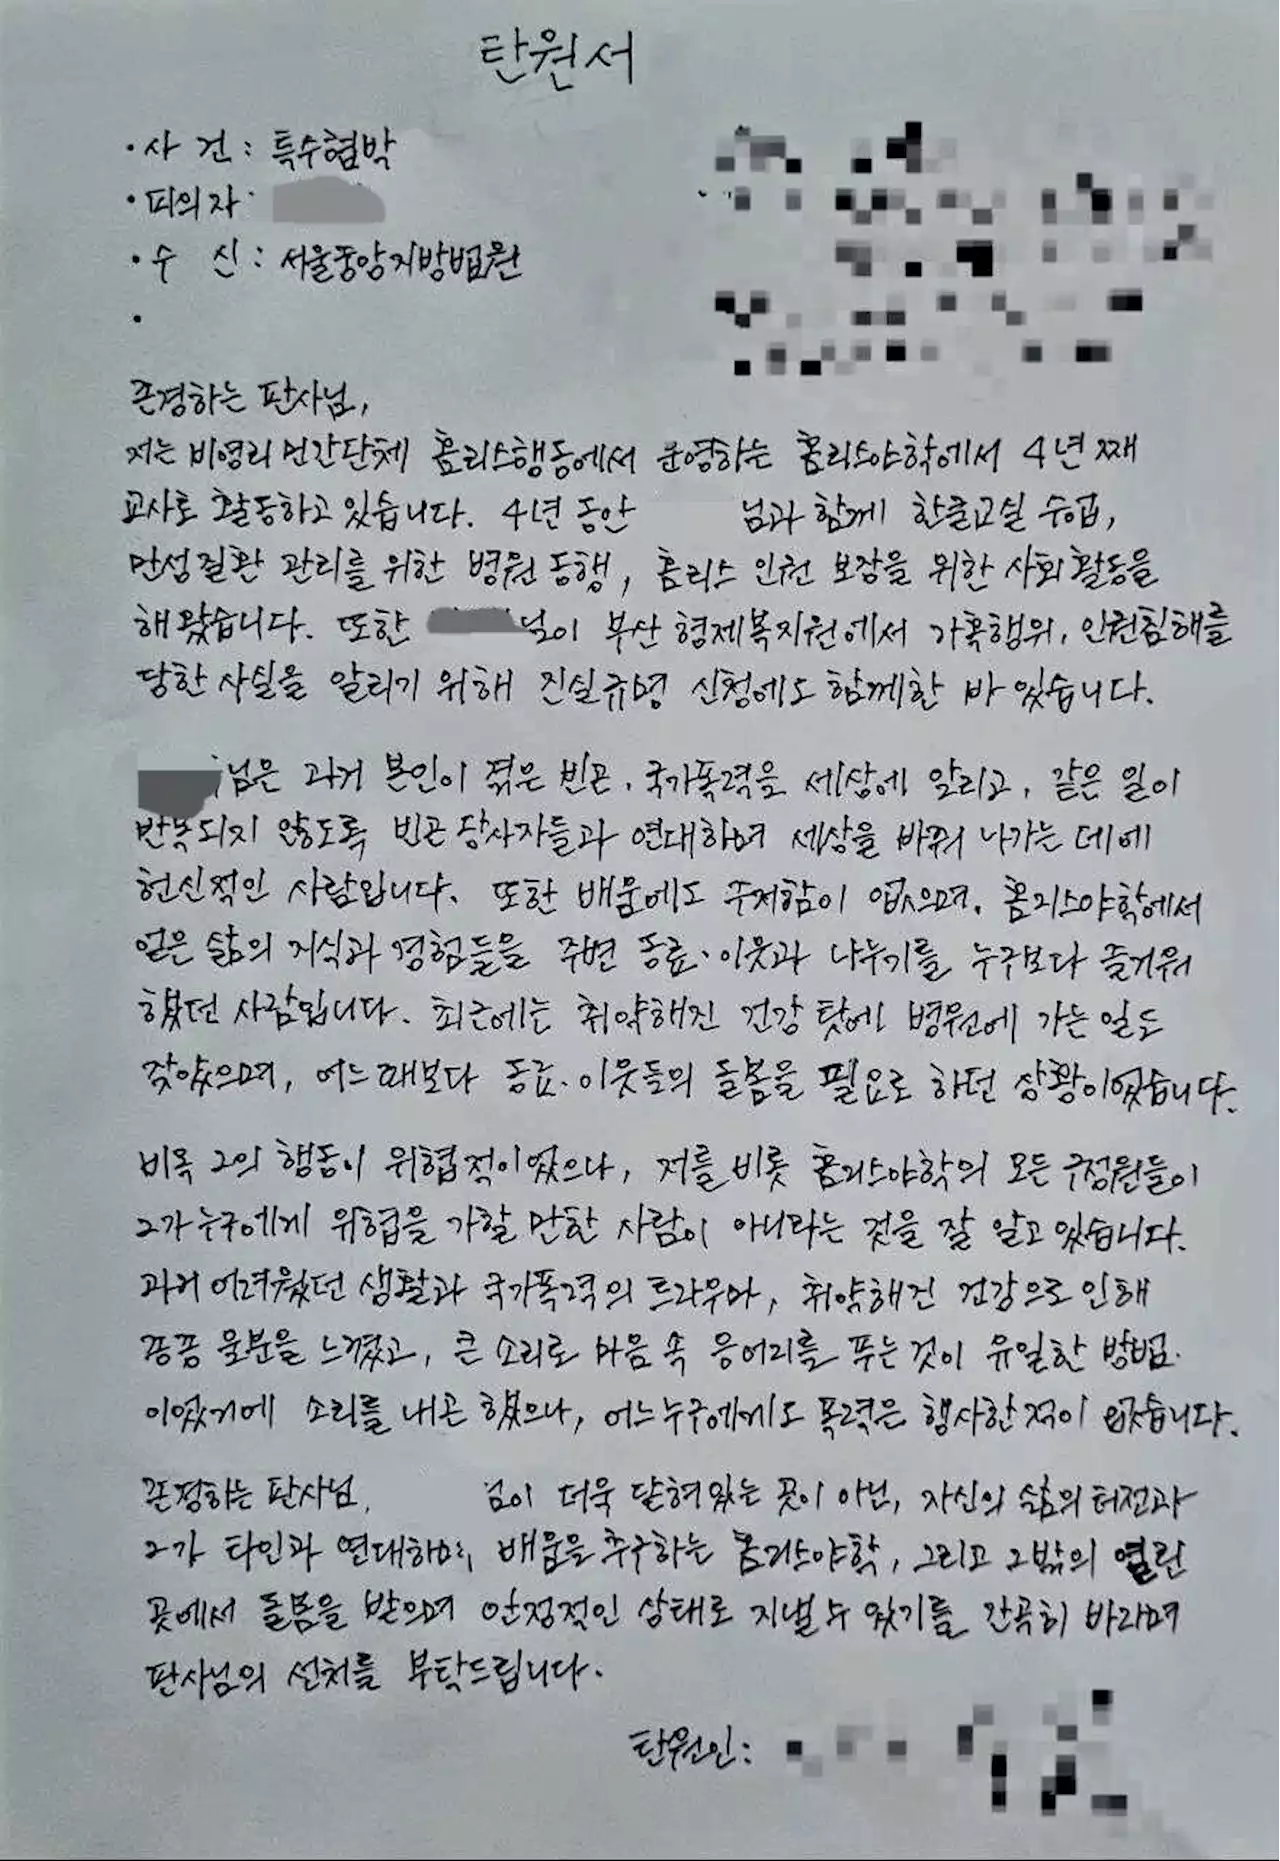 탄원서
· 사 건 : 특수협박
· 피의자
· 수 신 : 서울중앙지방법원
·
존경하는 판사님,
저는 비영리 민간단체 홈리스행동에서 운영하는 홈리스야학에서 4년 째
교사로 활동하고 있습니다. 4년 동안 님과 함께 한글교실 수업,
만성질환 관리를 위한 병원 동행, 홈리스 인권 보장을 위한 사회활동을
해왔습니다. 또한 님이 부산 형제복지원에서 가혹행위, 인권침해를
당한 사실을 알리기 위해 진실규명 신청에도 함께한 바 있습니다.
님은 과거 본인이 겪은 빈곤, 국가폭력을 세상에 알리고, 같은 일이
반복되지 않도록 빈곤 당사자들과 연대하며 세상을 바꿔 나가는 데에
헌신적인 사람입니다. 또한 배움에도 주저함이 없으며, 홈리스야학에서
얻은 삶의 지식과 경험들을 주변 동료·이웃과 나누기를 누구보다 즐거워
했던 사람입니다. 최근에는 취약해진 건강 탓에 병원에 가는 일도
잦았으며, 어느때보다 동료·이웃들의 돌봄을 필요로 하던 상황이었습니다.
비록 그의 행동이 위협적이었으나, 저를 비롯 홈리스야학의 모든 구성원들이
그가 누구에게 위협을 가할 만한 사람이 아니라는 것을 잘 알고 있습니다.
과거 어려웠던 생활과 국가폭력의 트라우마, 취약해진 건강으로 인해
종종 울분을 느꼈고, 큰 소리로 마음 속 응어리를 푸는 것이 유일한 방법
이었기에 소리를 내곤 했으나, 어느누구에게도 폭력은 행사한 적이 없습니다.
존경하는 판사님, 님이 더욱 닫혀있는 곳이 아닌, 자신의 삶의 터전과
그가 타인과 연대하며, 배움을 추구하는 홈리스야학, 그리고 그밖의 열린
곳에서 돌봄을 받으며 안정적인 상태로 지낼 수 있기를 간곡히 바라며
판사님의 선처를 부탁드립니다.
탄원인 :